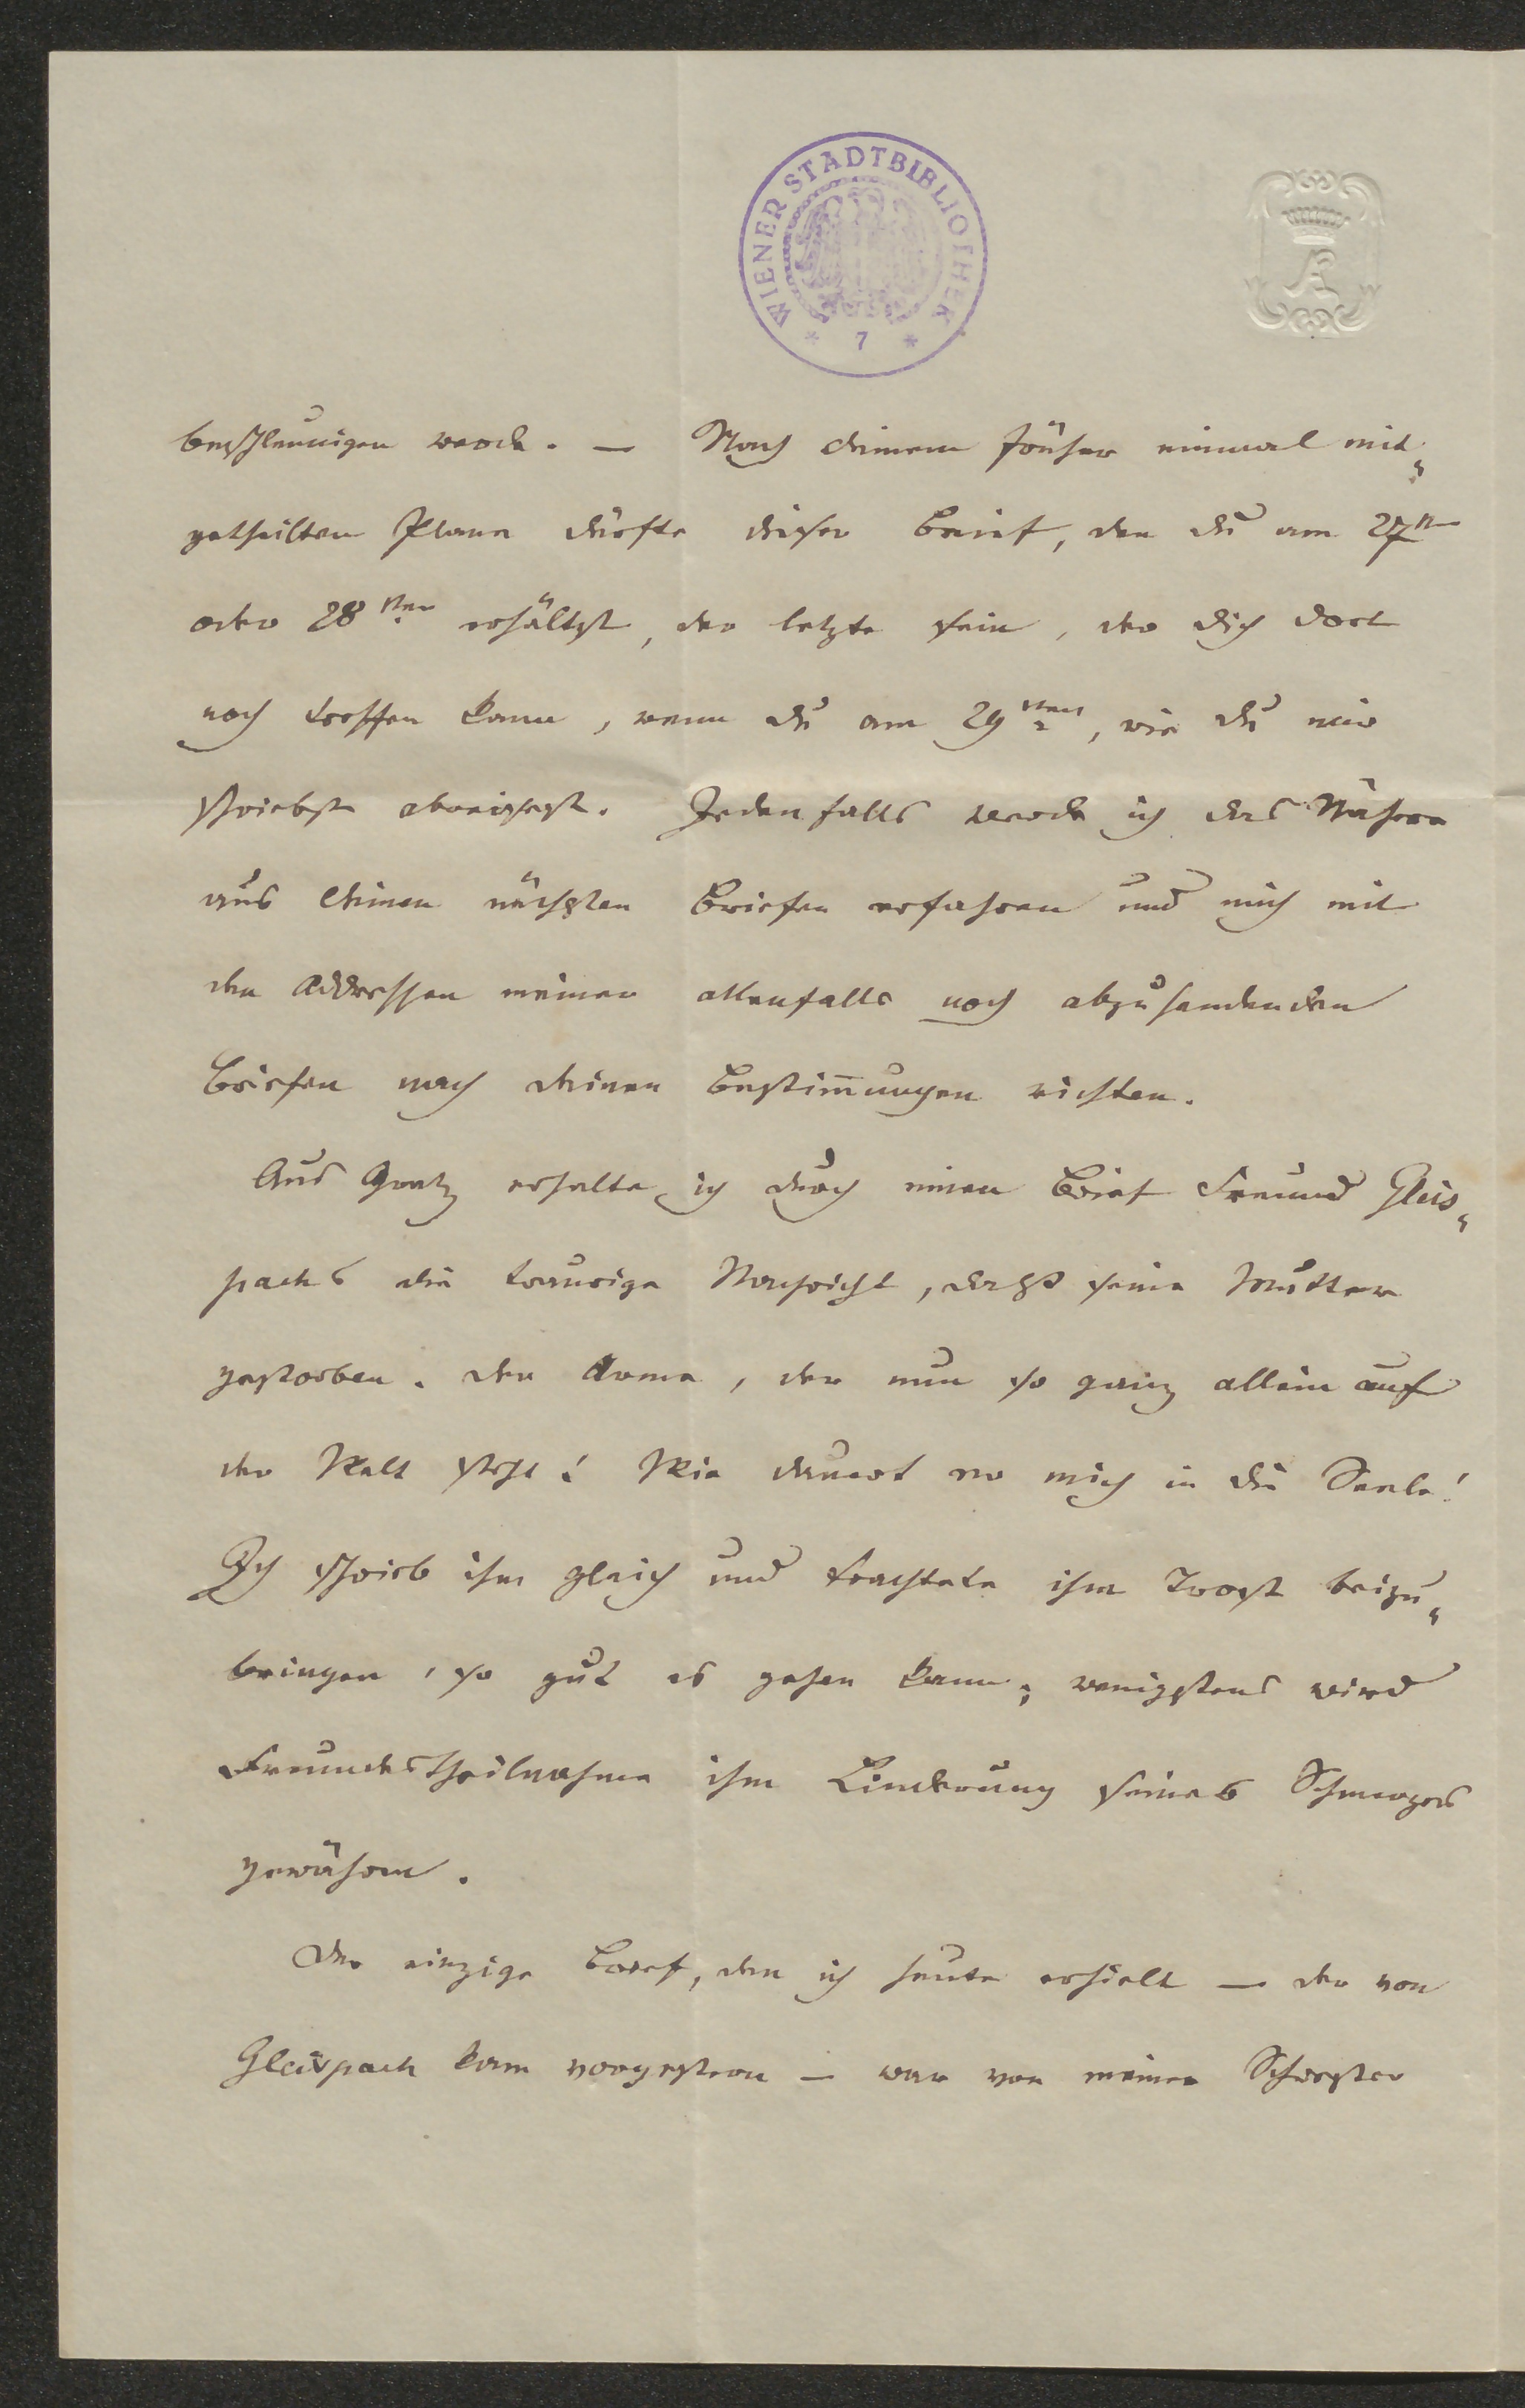 WIENER STADTBIBLIOTHEK
* 7 *
beschleunigen werde. — Nach deinem früher einmal mit„
getheilten Plane dürfte dieser Brief, den du am 27ten
oder 28sten erhältst, der letzte sein, der dich dort
noch treffen kann, wenn du am 29sten, wie du mir
schriebst abreisest. Jedenfalls werde ich das Nähere
aus deinen nächsten Briefen erfahren und mich mit
den Addressen meiner allenfalls noch abzusendenden
Briefen nach deinen Bestim̅ungen richten.
Aus Gratz erhalte ich durch einen Brief Freund Gleis„
pachs die traurige Nachricht, daß seine Mutter
gestorben. Der Arme, der nun so ganz allein auf
der Welt steht! Wie dauert er mich in die Seele!
Ich schrieb ihm gleich und trachtete ihm Trost beizu„
bringen, so gut es gehen kann; wenigstens wird
Freundestheilnahme ihm Linderung seines Schmerzes
gewähren.
Der einzige Brief, den ich heute erhielt — der von
Gleispach kam vorgestern — war von meiner Schwester